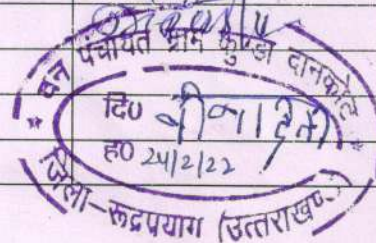 वन पंचायत ग्राम कुण्डा दानकोट
दि०
ह० 24/2/22
जिला-रूद्रप्रयाग (उत्तराखण्ड)